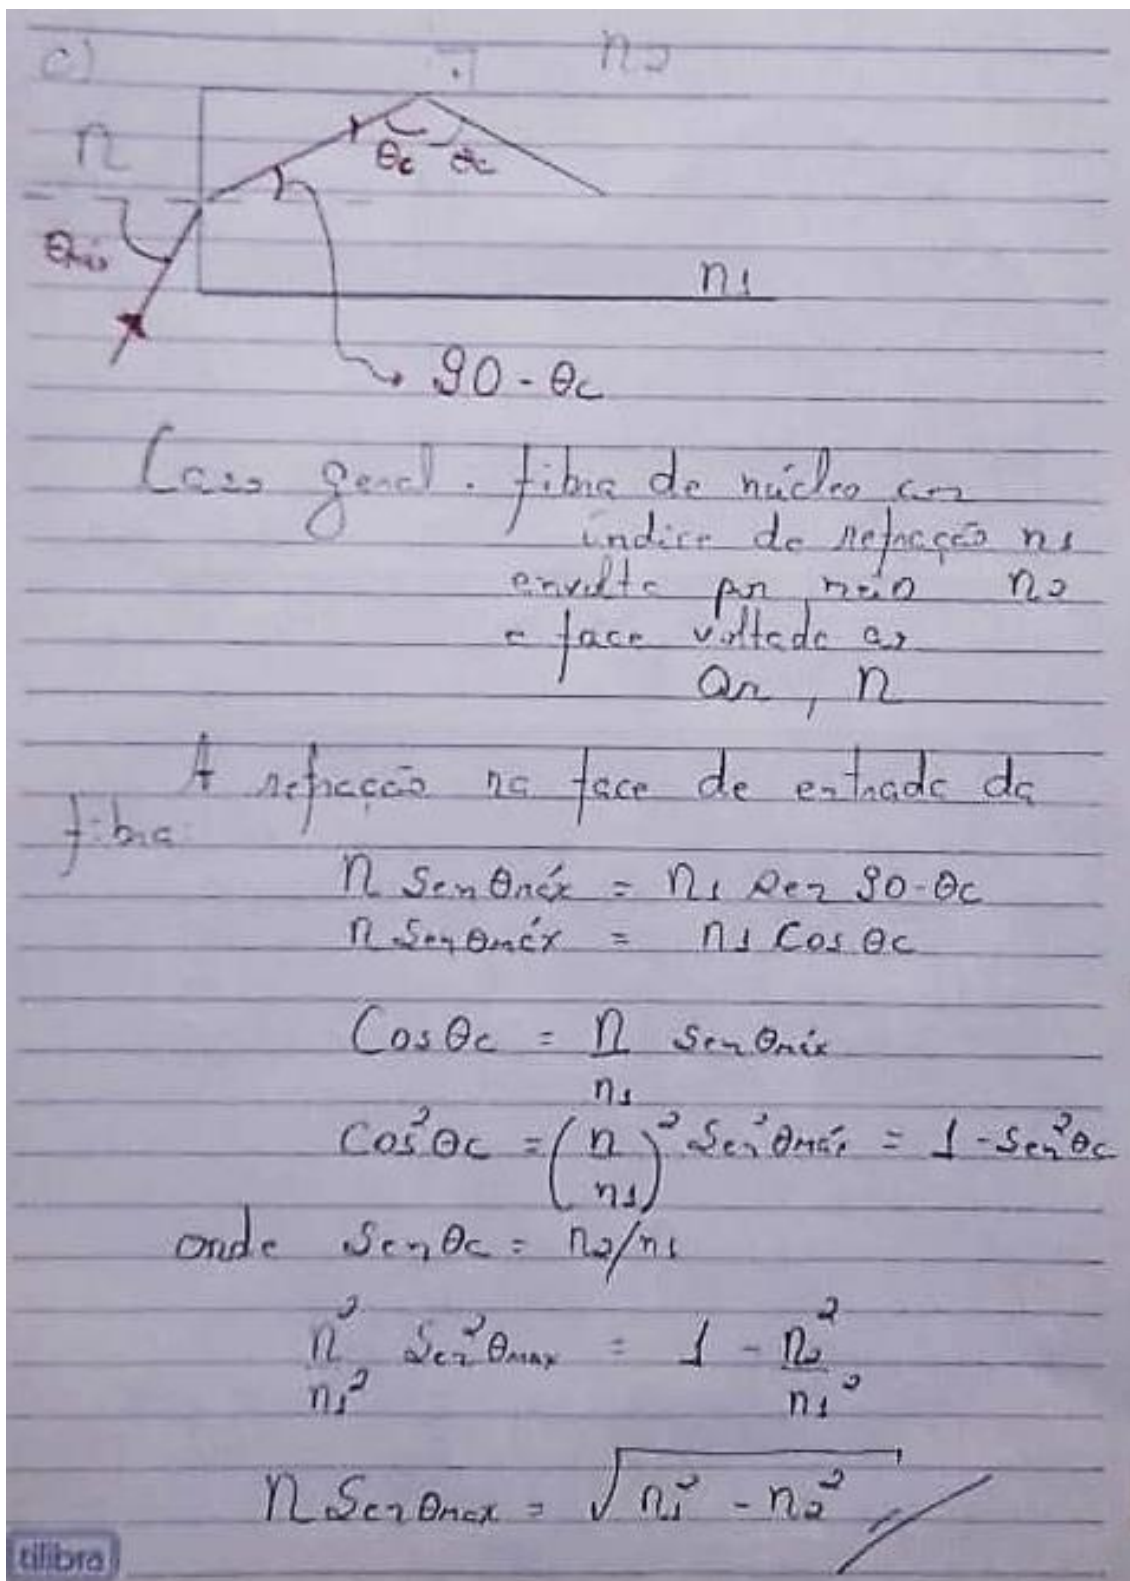 c) n2
n
θc θc
θmáx
n1
90 - θc
Caso geral. fibra de núcleo com
índice de refração n1
envolta por meio n2
e face voltada ao
ar, n
A refração na face de entrada da
fibra:
n Sen θmáx = n1 Sen 90-θc
n Sen θmáx = n1 Cos θc
Cos θc = n/n1 Sen θmáx
Cos²θc = (n/n1)² Sen²θmáx = 1 - Sen²θc
onde Sen θc = n2/n1
n²/n1² Sen²θmax = 1 - n2²/n1²
n Sen θmax = √(n1² - n2²)
tilibra